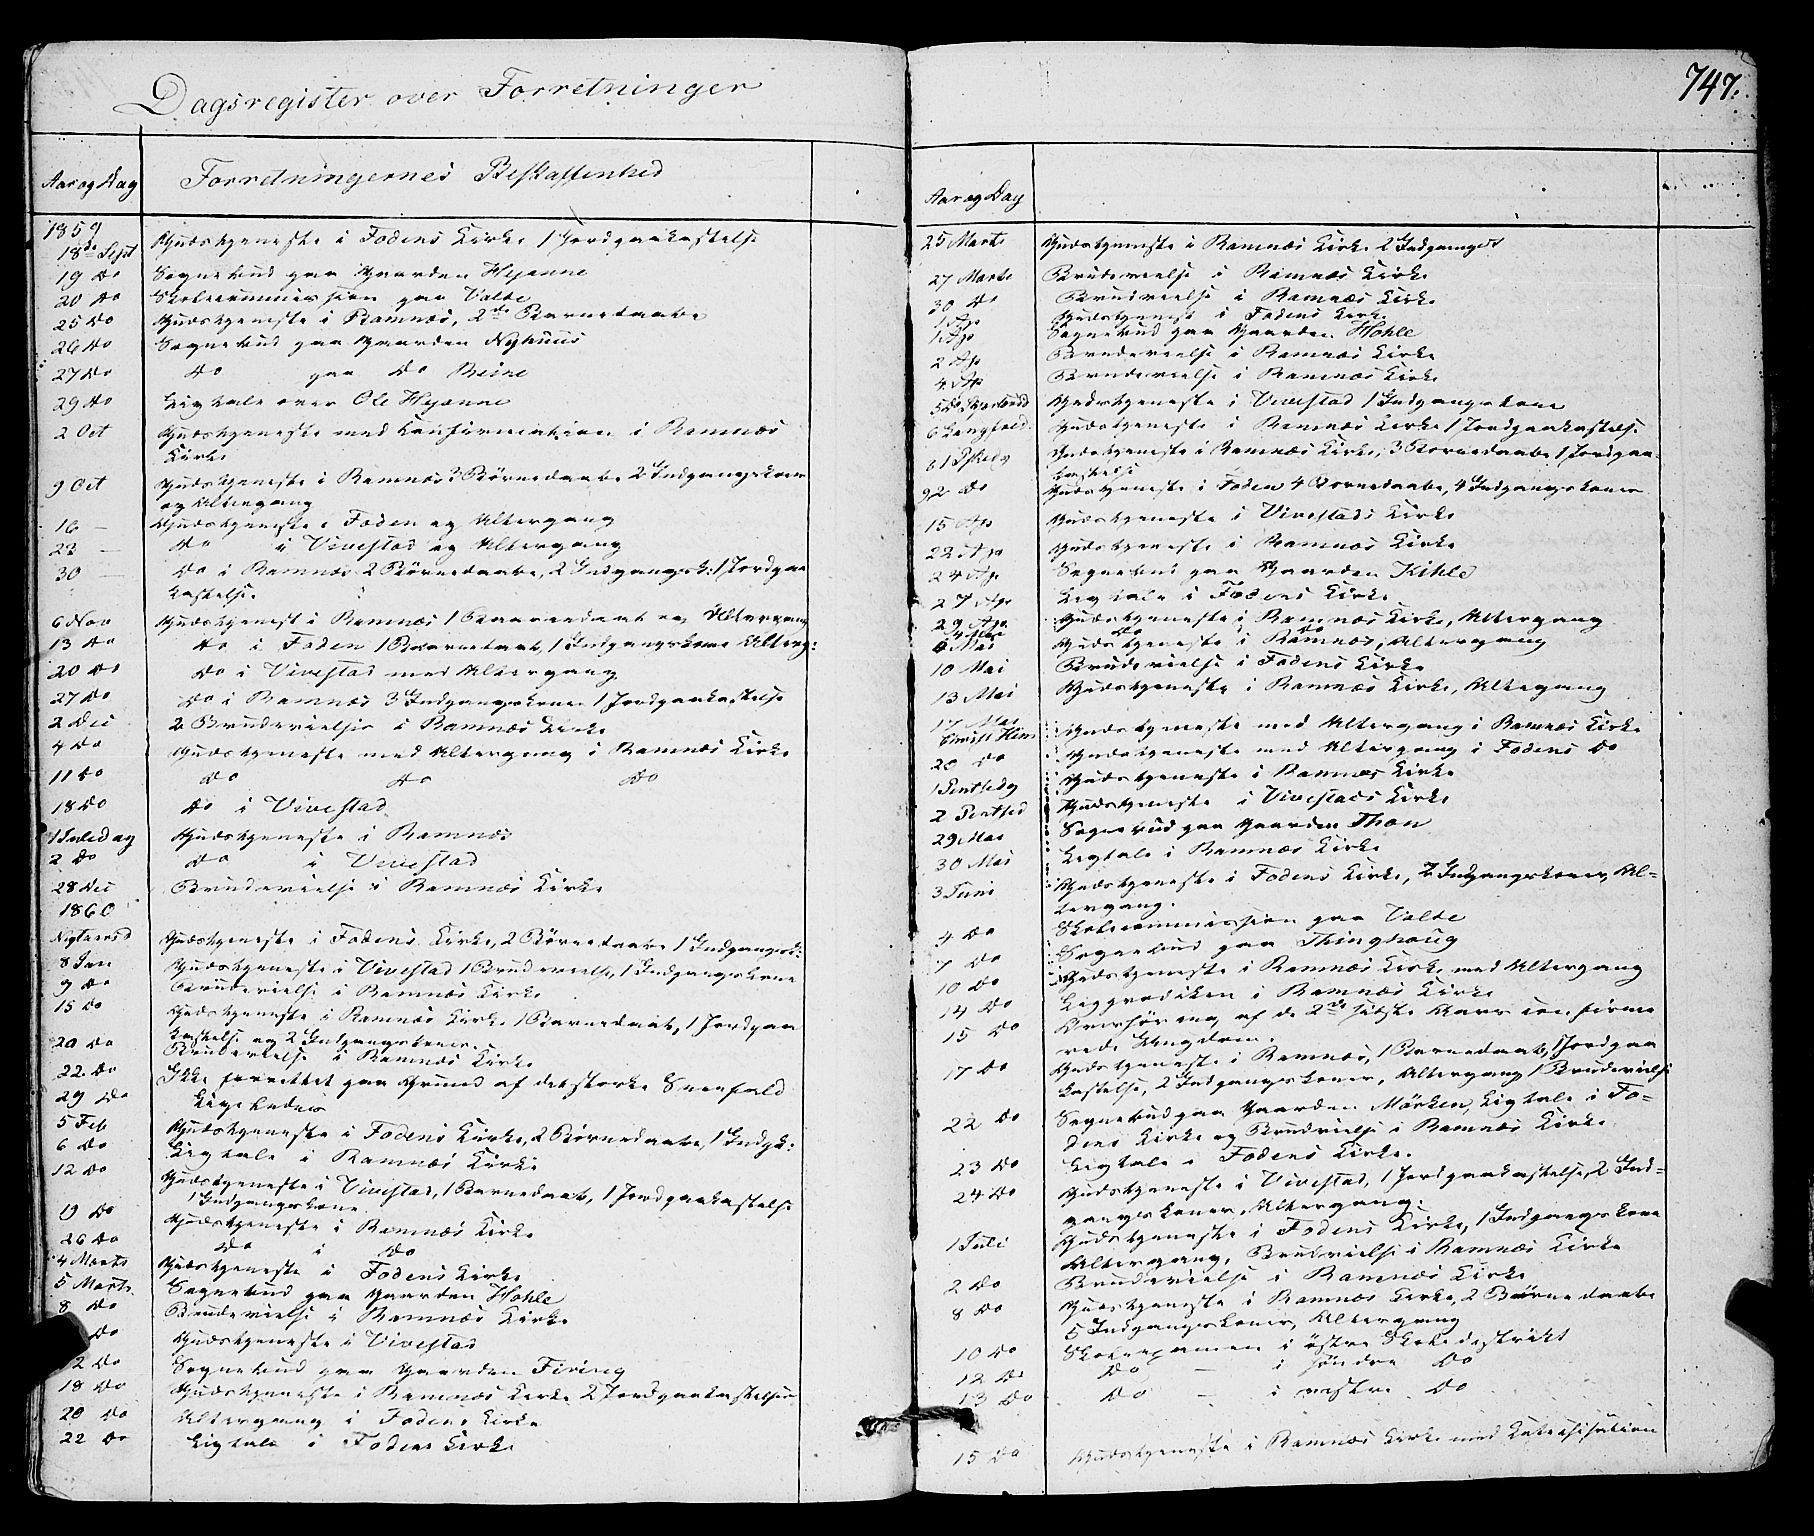 Dagsregister over Forretninger
747.
Aar og Dag Forretningernes Beskaffenhed
1859
18de Sept Gudstjeneste i Fodens Kirke 1 Jordpaakastelse
19 Do Sognebud paa Gaarden Hejanne
20 Do Skolecommission paa Valde
25 Do Gudstjeneste i Ramnæs, 2de Barnedaabe
26 Do Sognebud paa Gaarden Nyhuus
27 Do Do paa Do Beine
29 Do Ligtale over Ole Hejanne
2 Oct Gudstjeneste med Confirmation i Ramnæs
Kirke
9 Oct Gudstjeneste i Ramnæs 3 Börnedaabe 2 Indgangskoner
og Altergang
16 — Gudstjeneste i Foden og Altergang
23 — Do i Vivestad og Altergang
30 — Do i Ramnæs 2 Börnedaabe, 2 Indgangsk: 1 Jordpaa
kastelse.
6 Nov Gudstjenest i Ramnæs 1 Baarnedaab og Altergang
13 Do Do i Foden 1 Barnedaab, 1 Indgangskone Alterg:
20 Do Do i Vivestad med Altergang
27 Do Do i Ramnæs 3 Indgangskoner 1 Jordpaakastelse
2 Dec 2 Brudevielser i Ramnæs Kirke
4 Do Gudstjeneste med Altergang i Ramnæs Kirke
11 Do Do Do Do
18 Do Do i Vivestad
1 Juledag Gudstjeneste i Ramnæs
2 Do Do i Vivestad
28 Dec Brudevielse i Ramnæs Kirke
1860
Nytaarsd Gudstjeneste i Fodens Kirke, 2 Börnedaabe 1 Indgangsk:
8 Jan Gudstjeneste i Vivestad 1 Brudevielse, 1 Indgangskone
9 Do Brudevielse i Ramnæs Kirke
15 Do Gudstjeneste i Ramnæs Kirke 1 Barnedaab, 1 Jordpaa
kastelse og 2 Indgangskoner.
20 Do Brudevielse i Ramnæs Kirke
22 Do Ikke forrettet paa Grund af det storke Sneefald
29 Do Ligeledes
5 Feb Gudstjeneste i Fodens Kirke, 2 Börnedaabe, 1 Indgk:
6 Do Ligtale i Ramnæs Kirke
12 Do Gudstjeneste i Vivestad, 1 Barnedaab, 1 Jordpaakastelse
1 Indgangskone
19 Do Gudstjeneste i Ramnæs Kirke
26 Do Do i Do
4 Marts Gudstjeneste i Fodens Kirke
5 Marts Sognebud paa Gaarden Hohle
8 Do Brudevielse i Ramnæs Kirke
Do Gudstjeneste i Vivestad
12 Do Sognebud paa Gaarden Firing
18 Do Gudstjeneste i Ramnæs Kirke 2 Jordpaakastelser
20 Do Altergang i Fodens Kirke
22 Do Ligtale i Fodens Kirke
Aar og Dag
25 Marts Gudstjeneste i Ramnæs Kirke 2 Indgangsk
27 Marts Brudevielse i Ramnæs Kirke
30 Do Brudevielse i Ramnæs Kirke
1 Ap Gudstjenest i Fodens Kirke
1 Ap Sognebud paa Gaarden Hohle
2 Ap Brudevielse i Ramnæs Kirke
4 Ap Brudevielse i Ramnæs Kirke
5 Do Skjertorsd Gudstjeneste i Vivestad 1 Indgangskone
6 Langfred. Gudstjeneste i Ramnæs Kirke 1 Jordpaakastelse
8 1 Pskdg Gudstjeneste i Ramnæs Kirke, 3 Bornedaabe 1 Jordpaa-
kastelse
9 2 Do Gudstjeneste i Foden 4 Bornedaabe, 4 Indgangskoner
15 Ap Gudstjeneste i Vivestads Kirke
22 Ap Gudstjeneste i Ramnæs Kirke
24 Ap Sognebud paa Gaarden Kihle
27 Ap Ligtale i Fodens Kirke
29 Ap Gudstjeneste i Ramnæs Kirke, Altergang
4 Mai Do Do
6 Mai Gudstjeneste i Ramnæs, Altergang
10 Mai Brudevielse i Fodens Kirke
13 Mai Gudstjeneste i Ramnæs Kirke, Altegang
17 Mai
Christi Him Gudstjeneste med Altergang i Ramnæs Kirke
20 Do Gudstjeneste med Altergang i Fodens Do
1 Pintsedg Gudstjeneste i Ramnæs Kirke
2 Pentsed Gudstjeneste i Vivestads Kirke
29 Mai Sognebud paa Gaarden Thon
30 Mai Ligtale i Ramnæs Kirke
3 Juni Gudstjeneste i Fodens Kirke, 2 Indgangskoner, Al-
tergang.
4 Do Skolecommission paa Valde
7 Do Sognebud paa Thinghoug
10 Do Gudstjeneste i Ramnæs Kirke med Altergang
14 Do Ligprediken i Ramnæs Kirke
15 Do Overhöring af de 2de sidste Aars confirme
rede Ungdom.
17 Do Gudstjeneste i Ramnæs, 1 Barnedaab, 1 Jordpaa
kastelse, 2 Indgangskoner, Altergang 1 Brudevielse
22 Do Sognebud paa Gaarden Mörken, Ligtale i Fo-
dens Kirke og Brudvielse i Ramnæs Kirke
23 Do Ligtale i Fodens Kirke.
24 Do Gudstjeneste i Vivestad, 1 Jordpaakastelse, 2 Ind-
gangskoner, Altergang.
1 Juli Gudstjeneste i Fodens Kirke, 1 Indgangskone
Altergang, Brudvielse i Ramnæs Kirke
2 Do Brudevielse i Ramnæs Kirke
8 Do Gudstjeneste i Ramnæs Kirke, 2 Börnedaabe
5 Indgangskoner, Altergang
10 Do Skoleexamen i östre Skoledestrikt
12 Do Do — i söndre Do
13 Do Do — i vestre Do
15 Do Gudstjeneste i Ramnæs Kirke med Katechisation